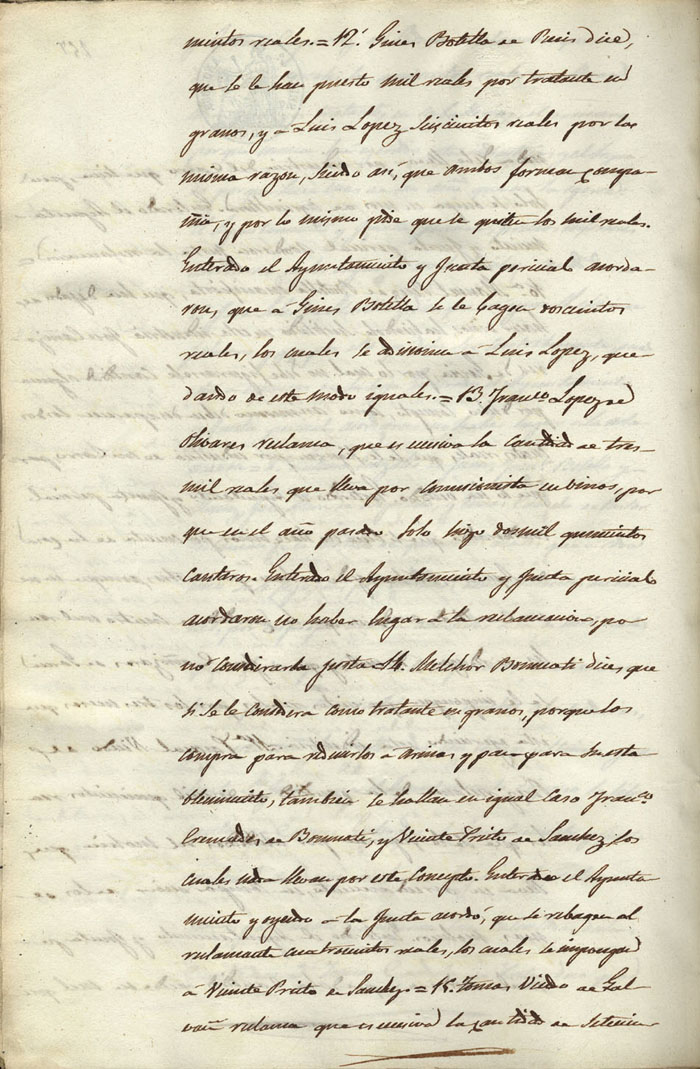 mientos reales.= 12.ª Gines Botella de Ruis dice,
que se le han puesto mil reales por tratante en
granos, y a Luis Lopez seiscientos reales por la
misma razon, siendo asi, que ambos forman compa-
ñia, y por lo mismo pide que se quiten los mil reales.
Enterado el Ayuntamiento y Junta pericial acorda-
ron, que á Gines Botella se le bagen doscientos
reales, los cuales se adicionen á Luis Lopez, que-
dando de este modo iguales.= 13.ª Fran.co Lopez de
Olivares reclama, que es ecsesiva la cantidad de tres-
mil reales que lleva por comisionista en vinos, por
que en el año pasado solo hizo dosmil quinientos
cantaros. Enterado el Ayuntamiento y Junta pericial
acordaron no haber lugar a la reclamacion, por
no considerarla justa. 14. Melchor Bonmati dice, que
si se le considera como tratante en granos, porque los
compra para reducirlos a arinas y pan para su esta
blecimiento, tambien se hallan en igual caso Fran.co
Cremades de Bonmatí, y Vicente Prieto de Sanchez, los
cuales nada llevan por este concepto. Enterado el Ayunta
miento y oyendo a la Junta acordó, que se rebagen al
reclamante cuatrocientos reales, los cuales se impongan
á Vicente Prieto de Sanchez.= 15. Tomas Viedo de Gal
vañ reclama que es ecsesiva la cantidad de setecien